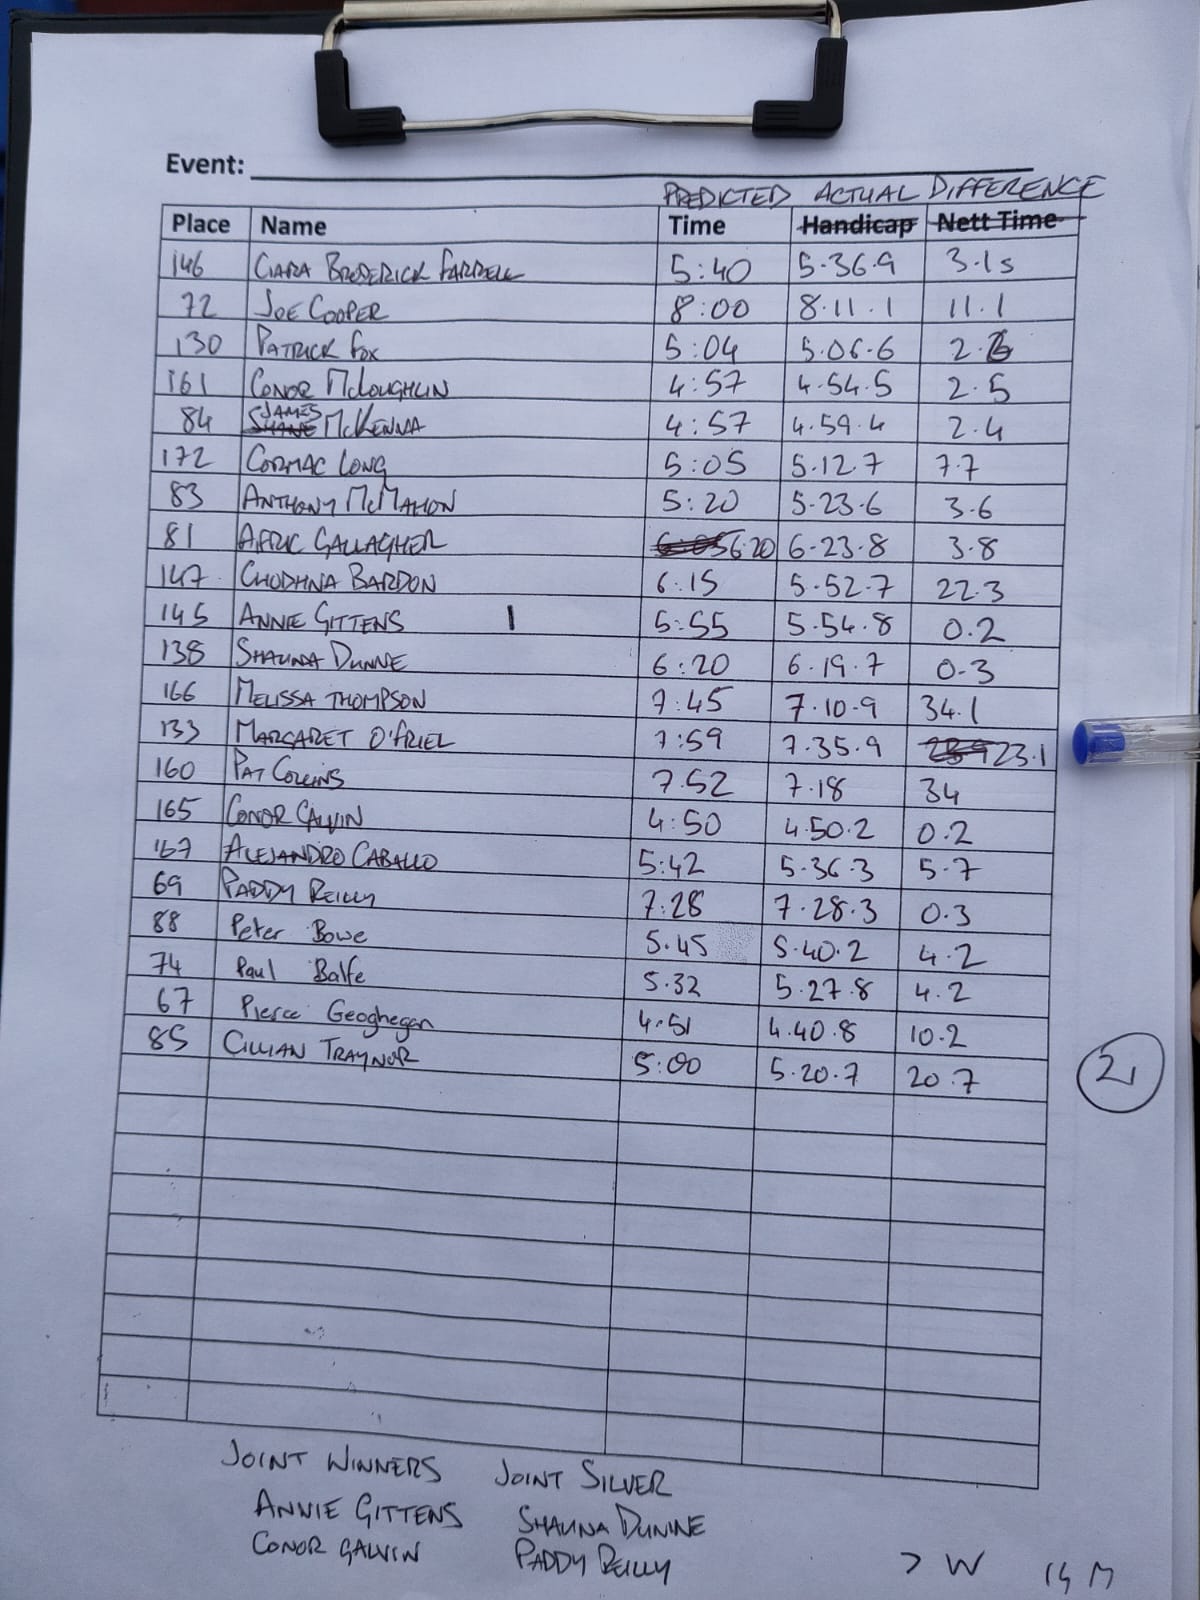 Event:
PREDICTED ACTUAL DIFFERENCE
Place Name Time Handicap Nett Time
146 CIARA BRODERICK FARRELL 5:40 5.36.9 3.1s
72 JOE COOPER 8:00 8.11.1 11.1
130 PATRICK FOX 5:04 5.06.6 2.6
161 CONOR MCLOUGHLIN 4:57 4.54.5 2.5
84 SHANE JAMES MCKENNA 4:57 4.59.4 2.4
172 CORMAC LONG 5:05 5.12.7 7.7
83 ANTHONY MCMAHON 5:20 5.23.6 3.6
81 AFRIC GALLAGHER 6:05 6:20 6.23.8 3.8
147 CHODHNA BARDON 6:15 5.52.7 22.3
145 ANNIE GITTENS 5:55 5.54.8 0.2
138 SHAUNA DUNNE 6:20 6.19.7 0.3
166 MELISSA THOMPSON 7:45 7.10.9 34.1
133 MARGARET O'FRIEL 7:59 7.35.9 23.1
160 PAT COLLINS 7.52 7.18 34
165 CONOR GALVIN 4:50 4.50.2 0.2
167 ALEJANDRO CABALLO 5:42 5.36.3 5.7
69 PADDY REILLY 7:28 7.28.3 0.3
88 Peter Bowe 5.45 5.40.2 4.2
74 Paul Balfe 5.32 5.27.8 4.2
67 Pierce Geoghegan 4:51 4.40.8 10.2
85 CILLIAN TRAYNOR 5:00 5.20.7 20.7
21
JOINT WINNERS JOINT SILVER
ANNIE GITTENS SHAUNA DUNNE
CONOR GALVIN PADDY REILLY
7 W 14 M